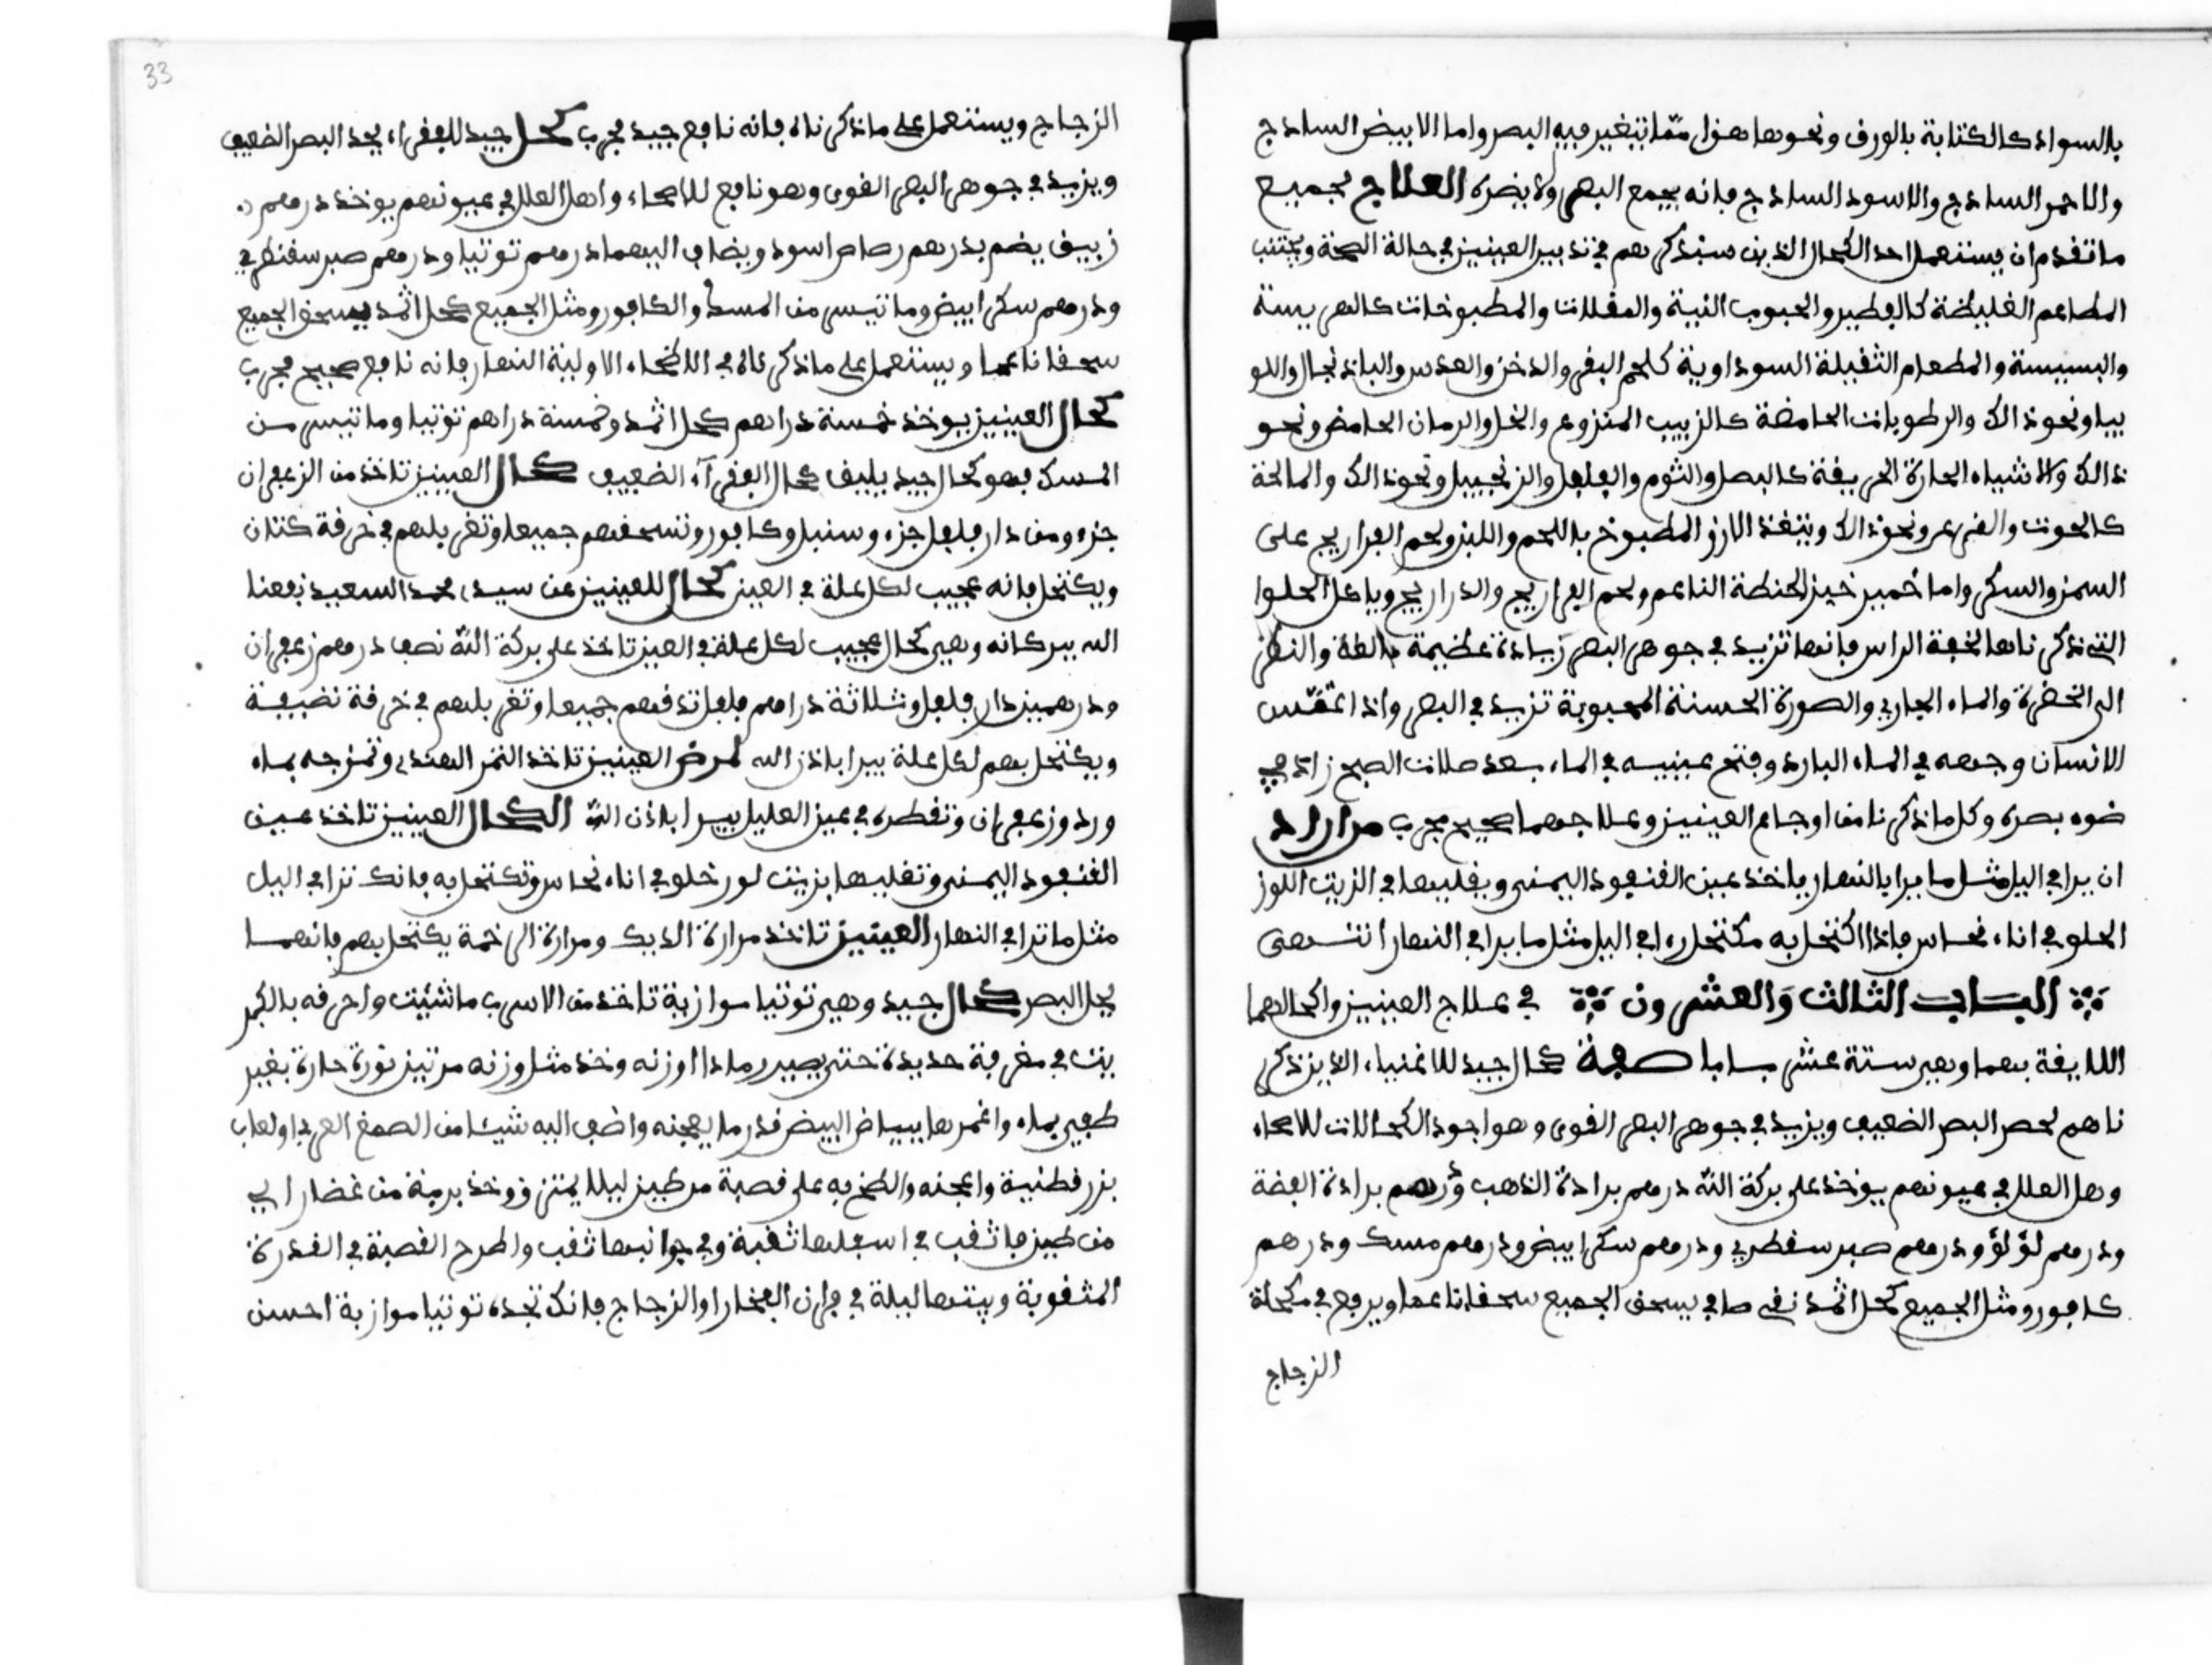 بالسواد كالكتابة بالورق ونحوها هذا مما يتغير فيه البصر واما الابيض الساذج
والاحمر الساذج والاسود الساذج فانه يجمع البصر ولا يضره العلاج لجميع
ما تقدم ان يستعمل احد الكحال الذين سنذكرهم في تدبير العينين في حالة الصحة ويجتنب
المطاعم الغليظة كالفطير والحبوب النية والمقلات والمطبوخات كالهريسة
والبسيسة والطعام الثقيلة السوداوية كلحم البقر والدخن والعدس والباذنجال واللو
بيا ونحو ذالك والرطوبات الحامضة كالزبيب المنزوع والخل والرمان الحامض ونحو
ذالك والاشياء الحارة الحريفة كالبصل والثوم والفلفل والزنجبيل ونحو ذالك والمالحة
كالحوت والقرعر ونحو ذالك ويتغذ الارز المطبوخ باللحم واللبن ولحم الفراريج على
السمن والسكر واما خمير خبز الحنطة الناعم ولحم الفراريج والدراريج وياكل الحلوا
التي ذكرناها لخفة الراس فانها تزيد في جوهر البصر زيادة عظيمة بالغة والنظر
الى الخضرة والماء الجاري والصورة الحسنة المحبوبة تزيد في البصر واذا غمّس
الانسان وجهه في الماء البارد وفتح عينيه في الماء بعد صلات الصبح زاد في
ضوء بصره وكل ما ذكرنا من اوجاع العينين وعلاجهما صحيح مجرب من اراد
ان يرا في اليل مثل ما يرا بالنهار ياخذ عين القنفود اليمنى ويقليها في الزيت اللوز
الحلو في اناء نحاس فاذا اكتحل به مكتحل راى في اليل مثل ما يرا في النهار انتهى
الباب الثالث والعشرون في علاج العينين واكحالهما
اللايقة بهما وهي ستة عشر بابا صفة كحال جيد للاغنياء الذين ذكر
ناهم لحصر البصر الضعيف ويزيد في جوهر البصر القوى وهو اجود الكحالات للاصحاء
وهل العلل في عيونهم يوخذ على بركة الله درهم برادة الذهب ودرهم برادة الفضة
ودرهم لؤلؤ ودرهم صبر سقطري ودرهم سكر ابيض ودرهم مسك ودرهم
كافور ومثل الجميع كحل اثمد نقي صافي يسحق الجميع سحقا ناعما ويرفع في مكحلة
الزجاج
33
الزجاج ويستعمل على ما ذكرناه فانه نافع جيد مجرب كحل جيد للفقراء يحد البصر الضعيف
ويزيد في جوهر البصر القوى وهو نافع للاصحاء واهل العلل في عيونهم يوخذ درهم
زيبق يضم بدرهم رصاص اسود ويضاف اليهما درهم توتيا ودرهم صبر سقطري
ودرهم سكر ابيض وما تيسر من المسك والكافور ومثل الجميع كحل اثمد يسحق الجميع
سحقا ناعما ويستعمل على ما ذكرناه في اللطخاء الاولية النهار فانه نافع صحيح مجرب
كحال العينين يوخذ خمسة دراهم كحل اثمد وخمسة دراهم توتيا وما تيسر من
المسك فهو كحال جيد يليق بحال الفقرآء الضعيف كحال العينين تاخذ من الزعفران
جزء ومن دار فلفل جزء وسنبل وكافور وتسحقهم جميعا وتغربلهم في خرقة كتان
ويكتحل فانه عجيب لكل علة في العين كحال للعينين عن سيدي محمد السعيد نفعنا
الله ببركاته وهي كحال عجيب لكل علة في العين تاخذ على بركة الله نصف درهم زعفران
ودرهمين دار فلفل وثلاثة دراهم فلفل تدقهم جميعا وتغربلهم في خرقة نضيفة
ويكتحل بهم لكل علة يبرا باذن الله لمرض العينين تاخذ التمر الهندي وتمزجه بماء
ورد وزعفران وتقطره في عين العليل يبرا باذن الله الكحال العينين تاخذ عين
القنفود اليمنى وتقليها بزيت لوز حلو في اناء نحاس وتكتحل به فانك ترا في اليل
مثل ما ترا في النهار العينين تاخذ مرارة الديك ومرارة الرخمة يكتحل بهم فانهما
يحل البصر كحال جيد وهي توتيا موازية تاخذ من الاسرب ما شئت واحرقه بالكبر
يت في مغرفة حديدة حتى يصير رمادا اوزنه وخذ مثل وزنه مرتين نورة حارة بغير
طفي بماء واغمرها ببياض البيض قدر ما يعجنه واضف اليه شيئا من الصمغ العربي او لعاب
بزر قطنية واعجنه والطخ به على قصبة من طين ليلا يحترق وخذ برمة من غضار اي
من طين فاثقب في اسفلها ثقبة وفي جوانبها ثقب واطرح القصبة في القدرة
المثقوبة وبيتها ليلة في فران الفخار او الزجاج فانك تجده توتيا موازية احسن